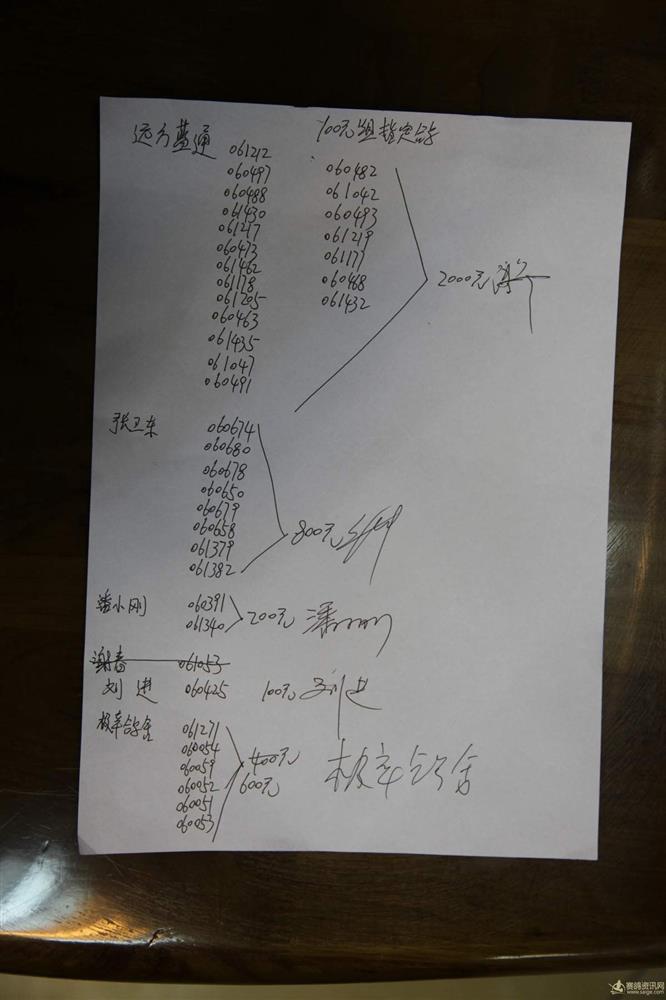 远方蓝通 100元组指定鸽
061212
060497 060482
060488 061042
061430 060493
061217 061219
060473 061177
061462 060468
061178 061432 2000元
061205
060463
061435
061047
060491
张卫东 060674
060680
060678
060650
060679
060658
061379 800元
061382
潘小刚 060391
061340 200元 潘小刚
谢春 061053
刘进 060425 100元 刘进
极率鸽舍 061271
060054 400元
060059 600元 极率鸽舍
060052
060051
060053
赛鸽资讯网
www.saige.com